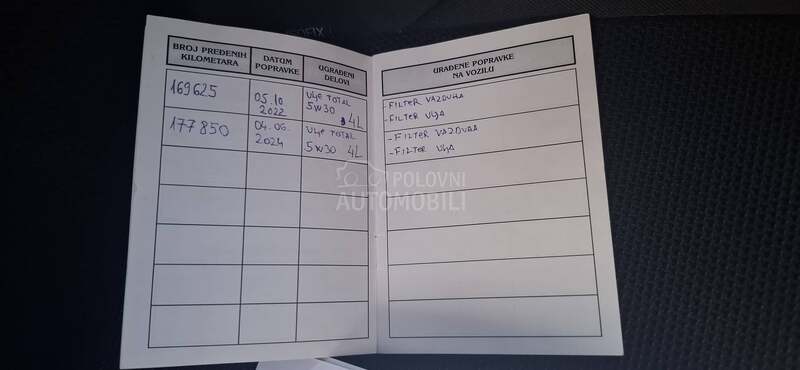 BROJ PREĐENIH
KILOMETARA
DATUM
POPRAVKE
UGRAĐENI
DELOVI
169625
05.10
2022
ULJE TOTAL
5W30 4L
177850
04.06.
2024
ULJE TOTAL
5W30 4L
URAĐENE POPRAVKE
NA VOZILU
-FILTER VAZDUHA
-FILTER ULJA
-FILTER VAZDUHA
-FILTER ULJA
POLOVNI
AUTOMOBILI